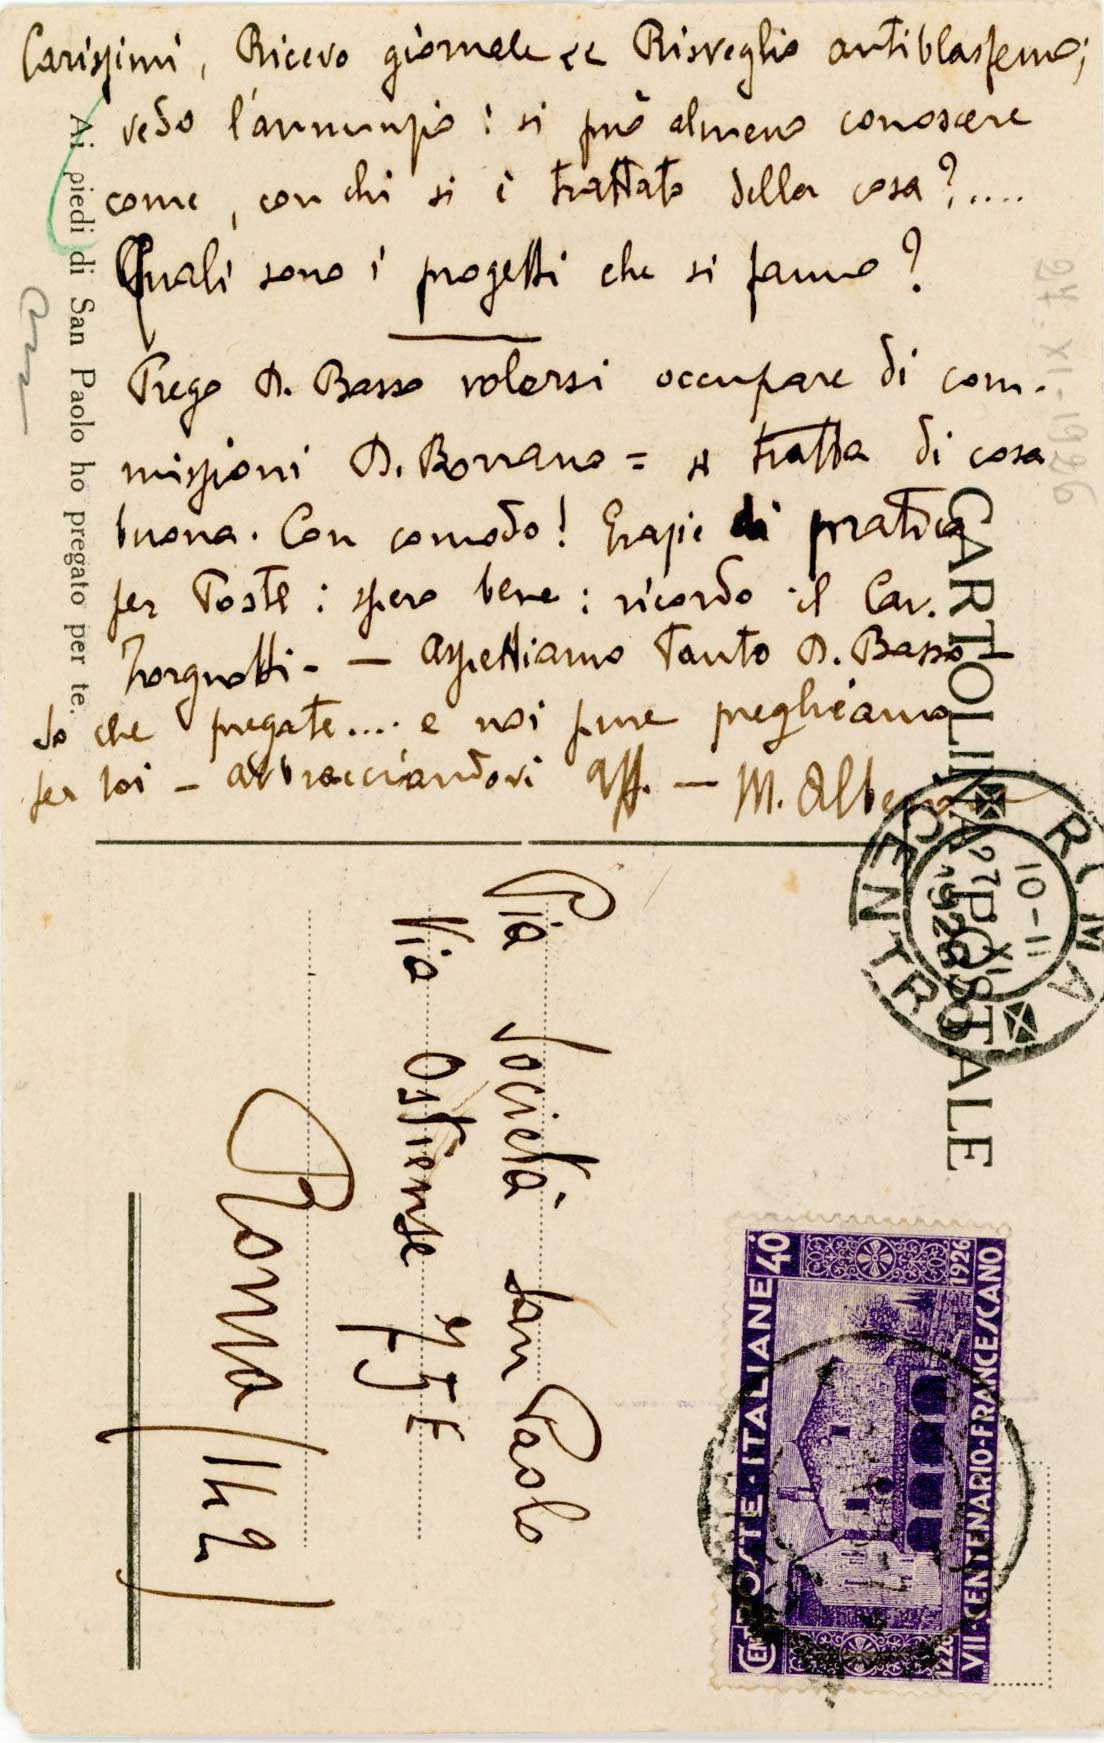 Carissimi, Ricevo giornale << Risveglio antiblasfemo;
vedo l'annunzio: si può almeno conoscere
come, con chi si è trattato della cosa?....
Quali sono i progetti che si fanno?
Prego D. Basso volersi occupare di com-
missioni D. Borrano = si tratta di cosa
buona. Con comodo! Grazie di pratica
per Poste: spero bene: ricordo il Cav.
Zorgnotti - — aspettiamo tanto D. Basso
So che pregate.... e noi pure preghiamo
per voi - abbracciandovi aff. — M. Alberione
Ai piedi di San Paolo ho pregato per te.
24 XI-1926
CARTOLINA POSTALE
ROMA CENTRO
10-11
27 XI
1926
Pia Società San Paolo
Via Ostiense 75E
Roma (142)
CENT. POSTE·ITALIANE 40
1226 1926
VII·CENTENARIO·FRANCESCANO